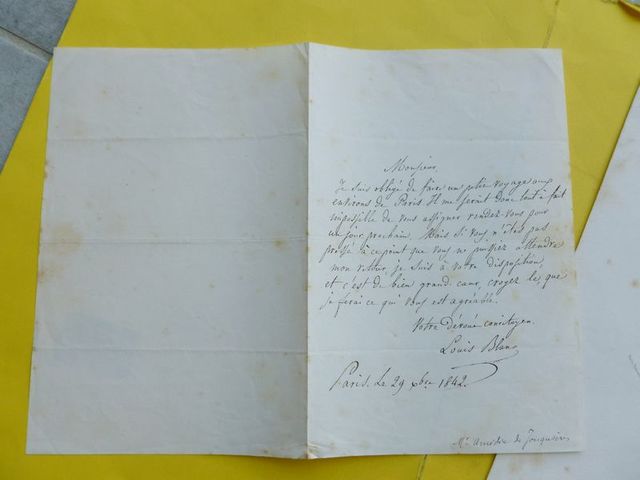 Monsieur,
Je suis obligé de faire un petit voyage aux
environs de Paris. Il me serait donc tout à fait
impossible de vous assigner rendez-vous pour
un jour prochain. Mais si vous n'êtes pas
pressé à ce point que vous ne puissiez attendre
mon retour, je suis à votre disposition,
et c'est de bien grand cœur, croyez le, que
je ferai ce qui vous est agréable.
Votre dévoué concitoyen.
Louis Blanc
Paris. Le 29 xbre 1842.
Mr de